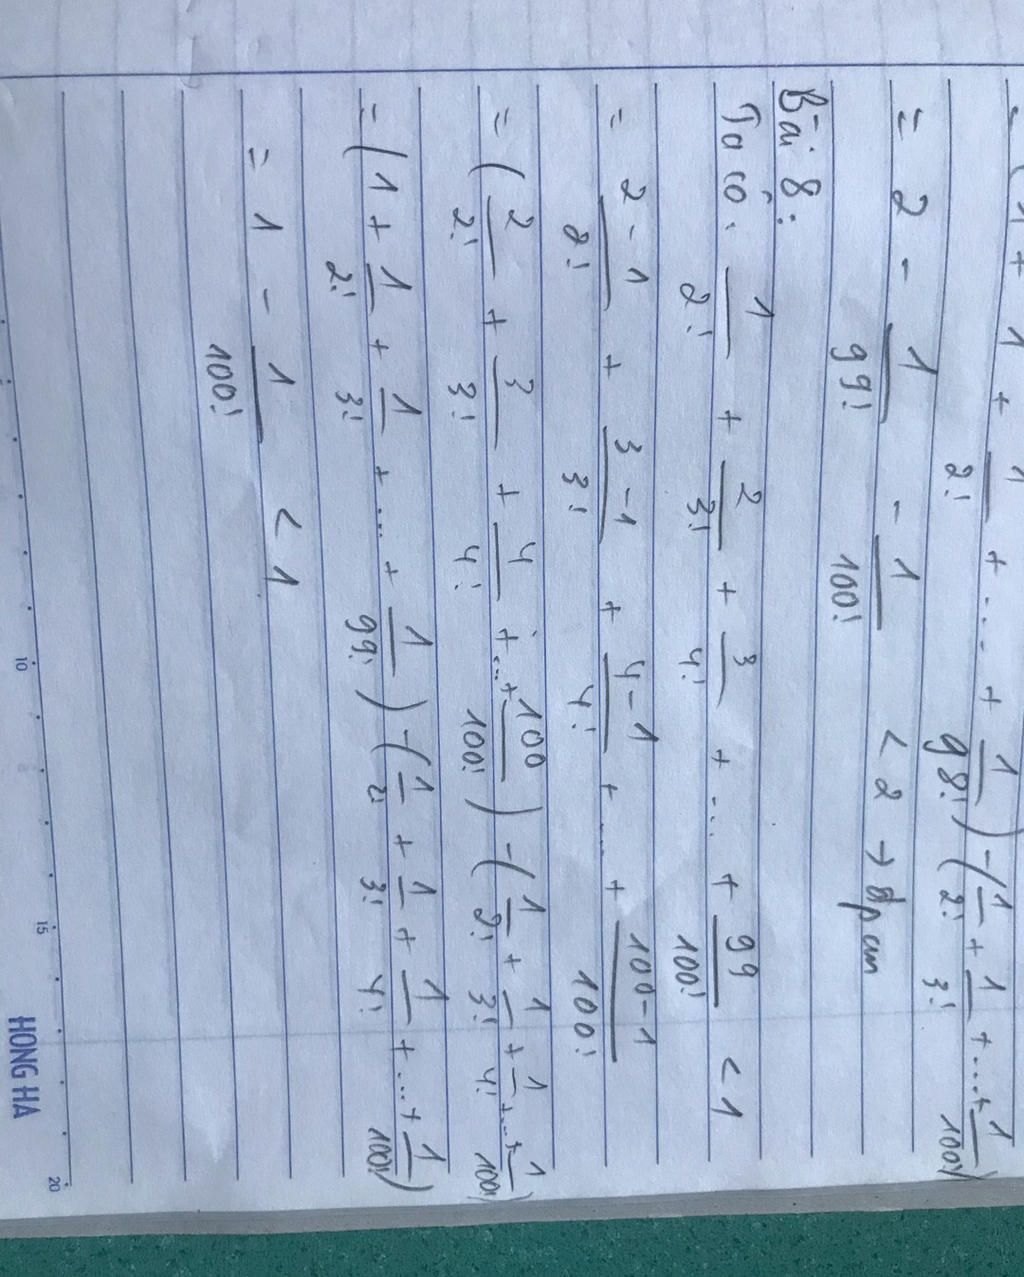 = (1 + 1 + 1/2! + ... + 1/98!) - (1/2! + 1/3! + ... + 1/100!)
= 2 - 1/99! - 1/100! < 2 → đpcm
Bài 8:
Ta có: 1/2! + 2/3! + 3/4! + ... + 99/100! < 1
= 2-1/2! + 3-1/3! + 4-1/4! + ... + 100-1/100!
= (2/2! + 3/3! + 4/4! + ... + 100/100!) - (1/2! + 1/3! + 1/4! + ... + 1/100!)
= (1 + 1/2! + 1/3! + ... + 1/99!) - (1/2! + 1/3! + 1/4! + ... + 1/100!)
= 1 - 1/100! < 1
10 15 HONG HA 20